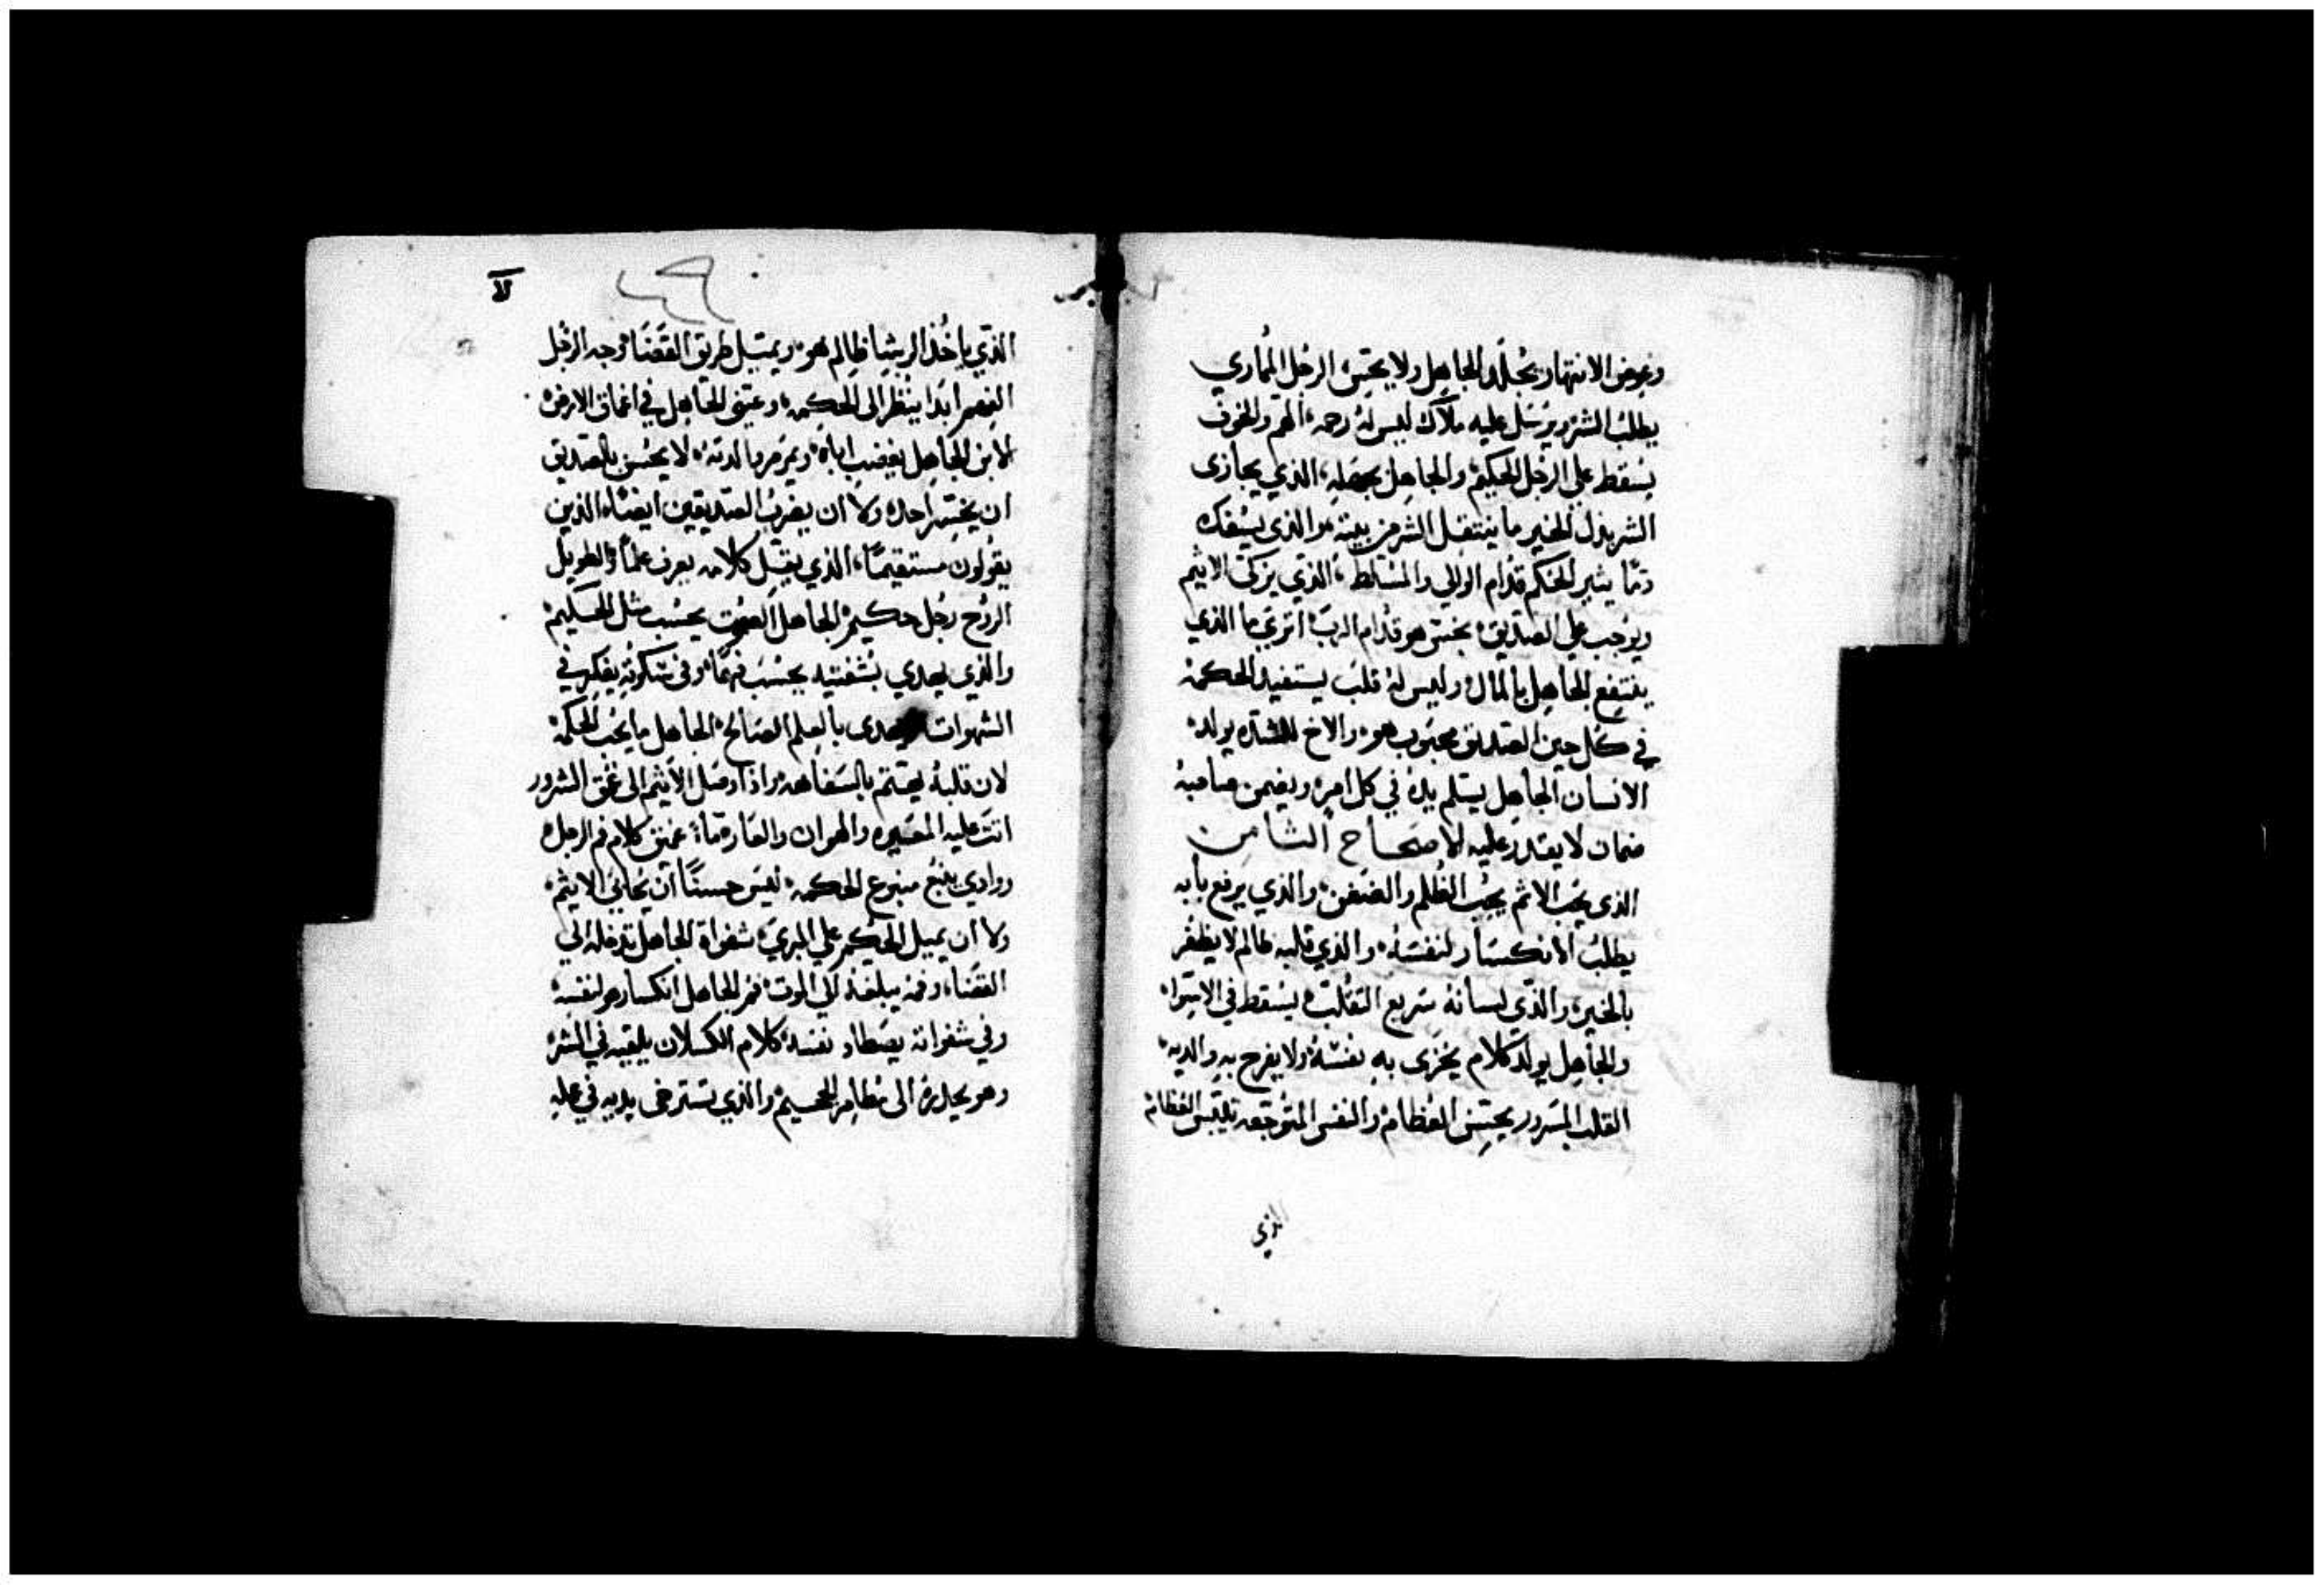 وعوض الانتهار يُجلَد الجاهل ولا يحتس الرجل المُماري
يطلبُ الشر ويرسَل عليه ملاك ليس لهُ رحمه، الهم والخوف
يسقط على الرجل الحكيم، والجاهل بجهله، الذي يجازى
الشر بدل الخير ما ينتقل الشر من بيته، والذى يسفك
دمًا يثير الحكم قدام الوالي والمسلط، الذي يزكى الاثيم
ويوجب على الصديق، نجس هو قدام الرب، اترى ما الذي
ينتفع الجاهل بالمال، وليس لهُ قلبٌ يستفيد الحكمهْ
في كل حين الصديق محبوب هو، والاخ للشده يولد،
الانسان الجاهل يسَلم يدهُ في كل امرٍ، ويضمن صاحبهُ
ضمان لا يقدر عليه الاصحاح الثامن
الذى يُحب الاثم يحب الظُلم والضغن، والذي يرفع بابه
يطلبُ الانكسار لنفسَهُ، والذي قلبه ظالم لا يظفر
بالخير، والذي لسانهُ سَريع التقلب، يسقط في الاسَواء
والجاهل يولد كلام يُخزى بهِ نفسَهُ، ولا يفرح به والديه،
القلب المسَرور يحسِن العظام، والنفس المتوَجعه تيبس العظام،
الذي
لا
الذي ياخُذ الرشا ظالم هو، ويميل طريق القضَا، وجه الرجُل
الفهم ابدًا ينظر الى الحكمه، وعيني الجاهل في اعماق الارض،
الابن الجاهل يغضب اباهُ، ويمرمر والدتهُ، لا يحسُن بالصديق
ان يخسر احد، ولا ان يضرب الصديقين ايضًا الذين
يقُولون مستقيمًا، الذي يقبل كلامه يعرف علمًا، والطويل
الروح رجُل حكيم، الجاهل الصموت يحسَب مثل الحكيم،
والذي يهدي بشفتيه يحسَب فهمًا، وفى سَكوته يفكر في
الشهوات ويهدى بالعِلم الصالح، الجاهل ما يُحب الحكمة
لان قلبهُ يهتم بالسَفاهه، واذا وصَل الاثيم الى عُمق الشرور
اتتَ عليه المعيره والهوان والعار، مآءً عميق كلام فم الرجل،
ووادي ينبُع ينبوع الحكمه، ليس حسنًا ان يُحابى الاثيم،
ولا ان يميل الحكم على البريَ، شفواة الجاهل تدخله الي
القضَاء، وفمه يبلغهُ الى الموت، فم الجاهل انكسار هو لنفسهُ
وفي شفواته يصَطاد نفسهُ، كلام الكسلان يلقيه في الشر
وهو يحدرهُ الى مطامر الجحيم، والذي تسترخى يديه في عمله